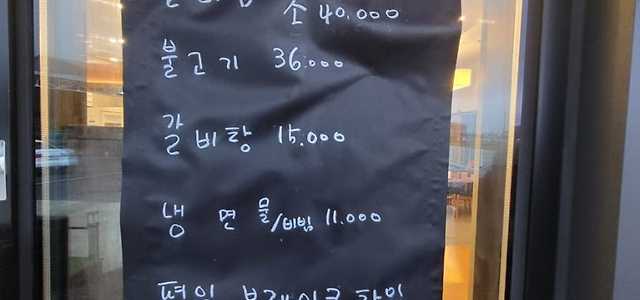 소 40.000
불고기 36.000
갈비탕 15.000
냉면 물/비빔 11.000
평일 브레이크 타임